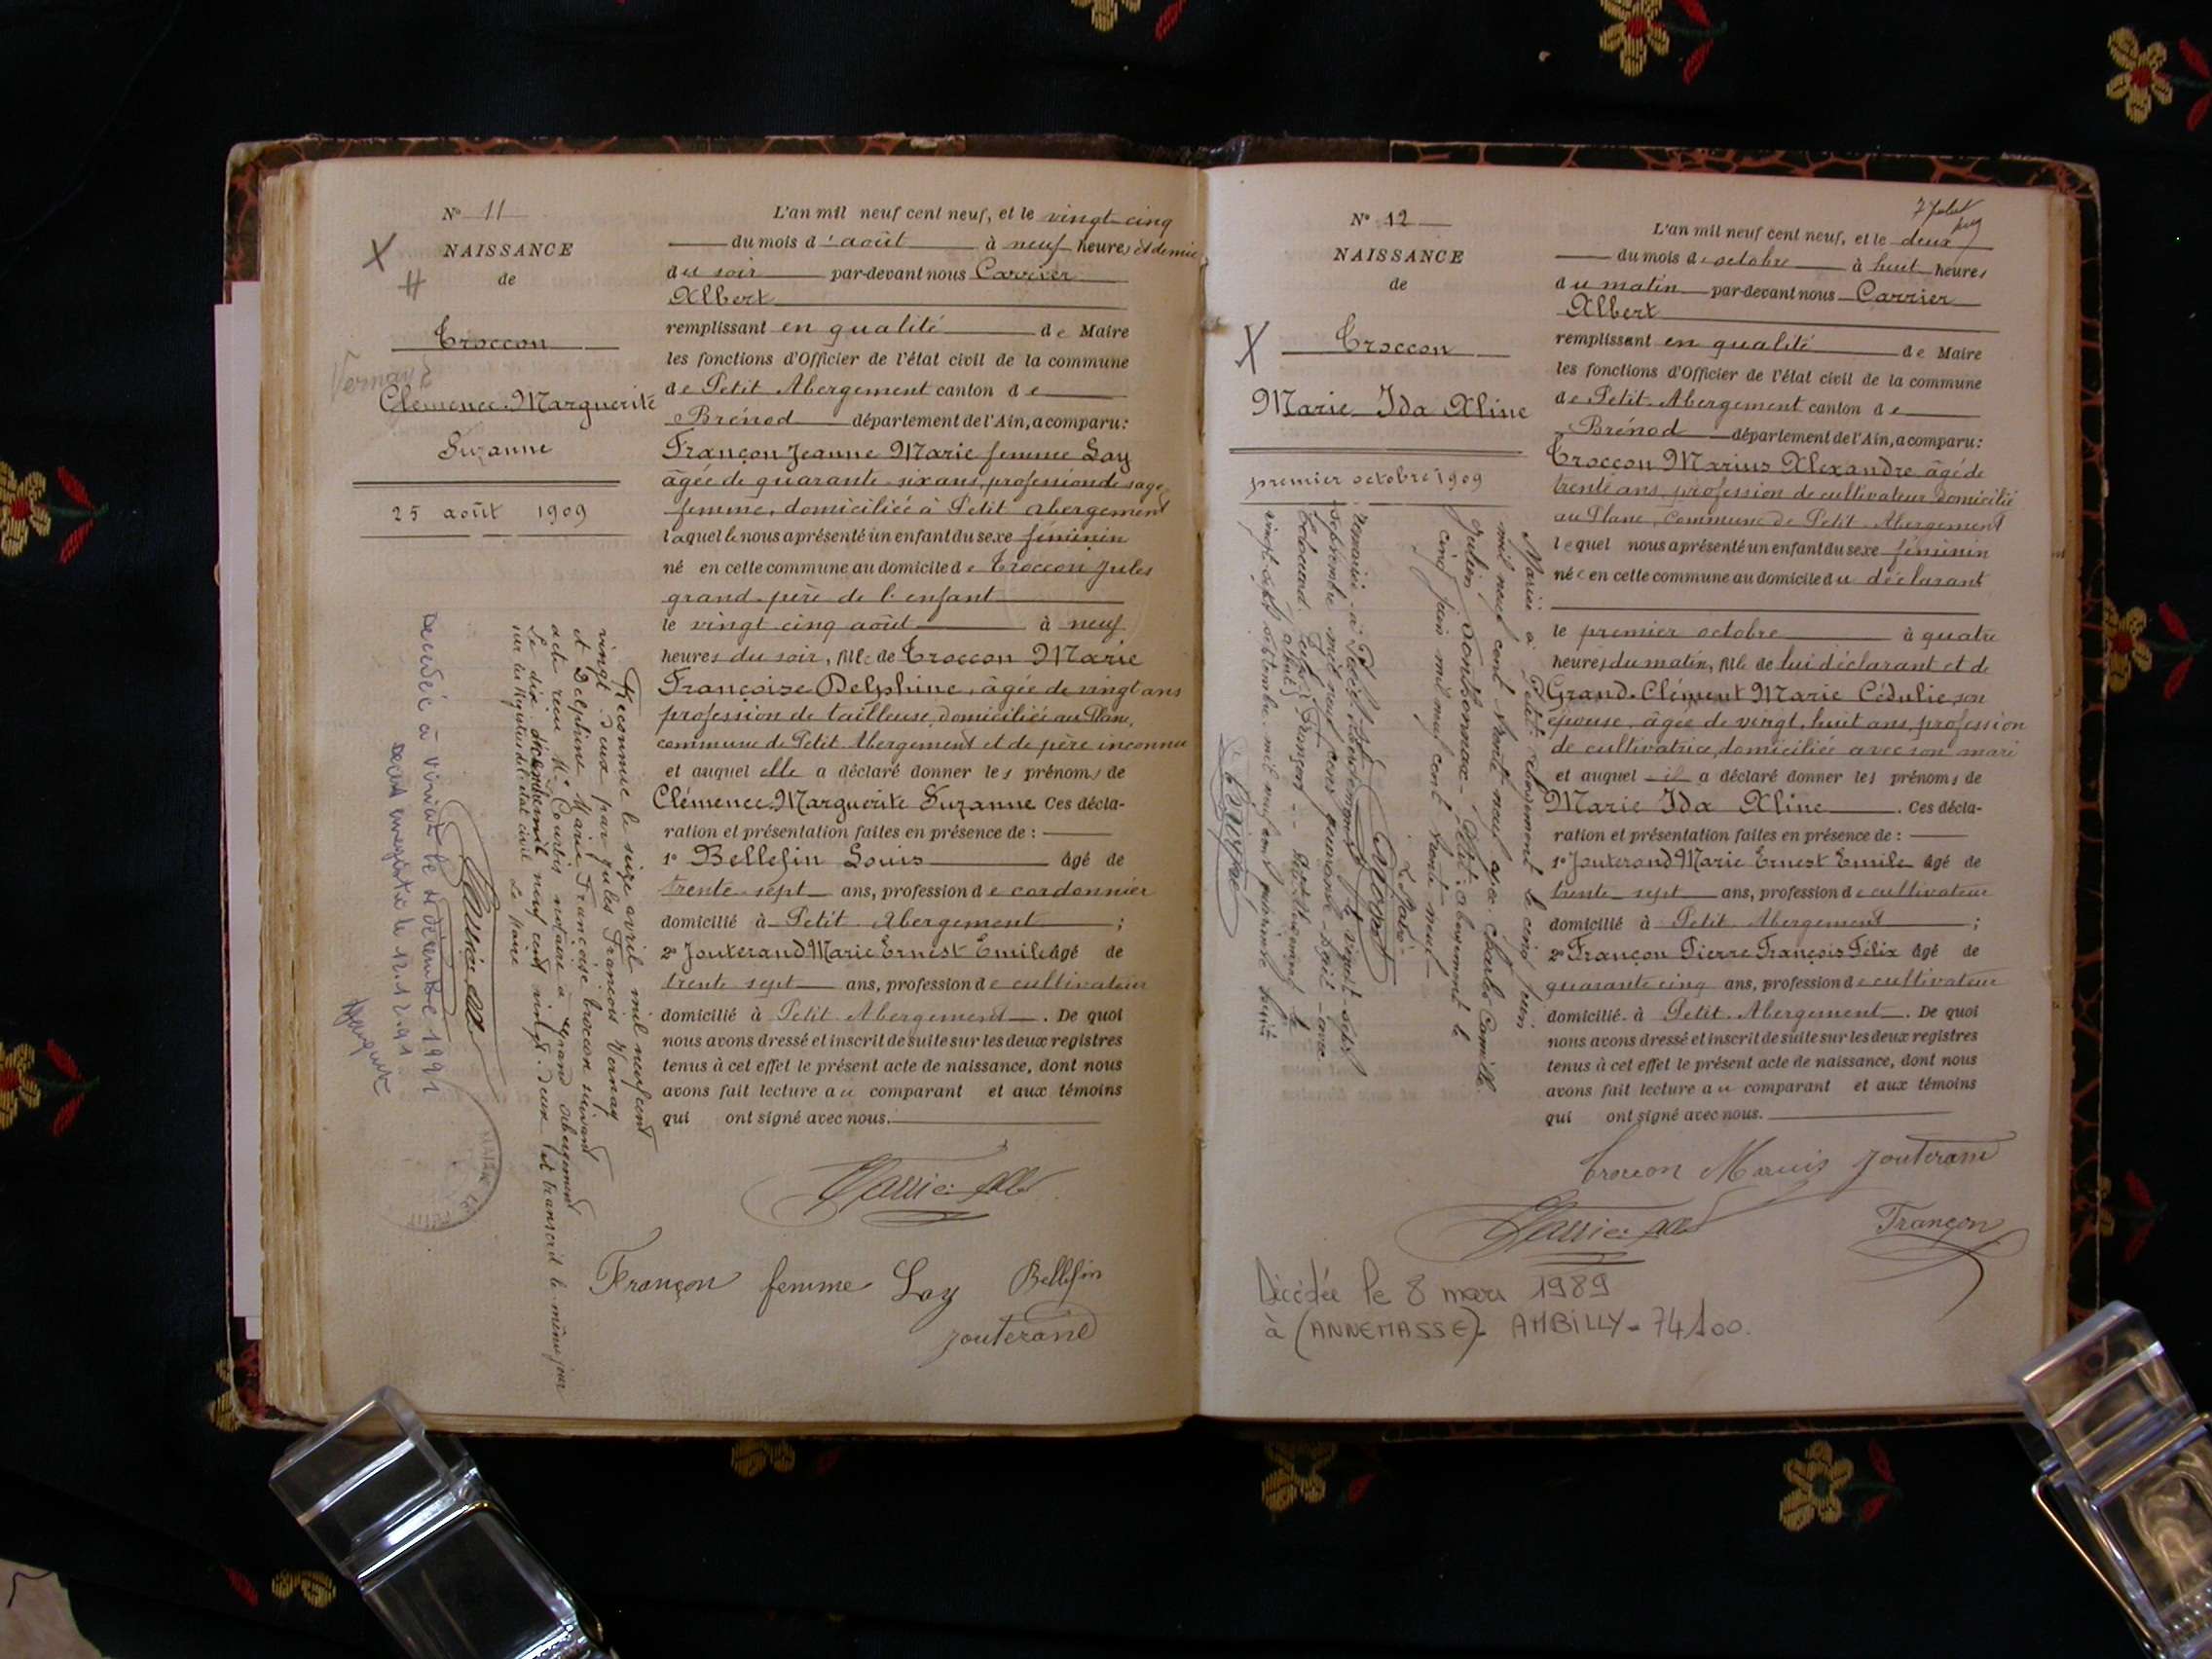 N° 11
NAISSANCE
de
Croccon
Vernay
Clémence Marguerite
Suzanne
25 août 1909
L'an mil neuf cent neuf, et le vingt cinq
du mois d'août à neuf heures et demie
du soir par-devant nous Carrier
Albert
remplissant en qualité de Maire
les fonctions d'Officier de l'état civil de la commune
de Petit Abergement canton de
Brénod département de l'Ain, a comparu :
Françon Jeanne Marie femme Lay
âgée de quarante six ans, profession de sage
femme, domiciliée à Petit abergement
laquelle nous a présenté un enfant du sexe féminin
né en cette commune au domicile de Croccon Jules
grand-père de l'enfant
le vingt cinq août à neuf
heures du soir, fille de Croccon Marie
Françoise Delphine, âgée de vingt ans
profession de tailleuse, domiciliée au Plane,
commune de Petit Abergement et de père inconnu
et auquel elle a déclaré donner les prénoms de
Clémence Marguerite Suzanne Ces décla-
ration et présentation faites en présence de :
1° Bellefin Louis âgé de
trente-sept ans, profession de cordonnier
domicilié à Petit Abergement ;
2° Jouterand Marie Ernest Emile âgé de
trente sept ans, profession de cultivateur
domicilié à Petit Abergement. De quoi
nous avons dressé et inscrit de suite sur les deux registres
tenus à cet effet le présent acte de naissance, dont nous
avons fait lecture au comparant et aux témoins
qui ont signé avec nous.
Carrier Alb
Françon femme Lay Bellefin
Jouterand
Reconnue le seize avril mil neuf cent
vingt deux par Jules François Vernay
et Delphine Marie Françoise Croccon suivant
acte reçu Me Courtois notaire à Grand abergement
Le dix décembre mil neuf cent vingt-deux transcrit le même jour
sur les Registres de l'état civil Le Maire
Carrier Alb
Décédée à Viriat le décembre 1991
décès enregistré le 12.12.91
N° 12
NAISSANCE
de
Croccon
Marie Ida Aline
premier octobre 1909
L'an mil neuf cent neuf, et le deux
du mois d'octobre à huit heures
du matin par-devant nous Carrier
Albert
remplissant en qualité de Maire
les fonctions d'Officier de l'état civil de la commune
de Petit Abergement canton de
Brénod département de l'Ain, a comparu :
Croccon Marius Alexandre âgé de
trente ans, profession de cultivateur domicilié
au Plane, commune de Petit Abergement
lequel nous a présenté un enfant du sexe féminin
née en cette commune au domicile du déclarant
le premier octobre à quatre
heures du matin, fille de lui déclarant et de
Grand-Clément Marie Cédulie, son
épouse, âgée de vingt huit ans, profession
de cultivatrice, domiciliée avec son mari
et auquel il a déclaré donner les prénoms de
Marie Ida Aline. Ces décla-
ration et présentation faites en présence de :
1° Jouterand Marie Ernest Emile âgé de
trente sept ans, profession de cultivateur
domicilié à Petit Abergement ;
2° Françon Pierre François Félix âgé de
quarante cinq ans, profession de cultivateur
domicilié à Petit Abergement. De quoi
nous avons dressé et inscrit de suite sur les deux registres
tenus à cet effet le présent acte de naissance, dont nous
avons fait lecture au comparant et aux témoins
qui ont signé avec nous.
Croccon Marius Jouterand
Carrier Alb Françon
Mariée à Petit abergement le cinq juin
mil neuf cent trente neuf avec Charles Camille
Julien Tonthonnax - Petit-abergement le
cinq juin mil neuf cent trente-neuf -
Remariée à Petit Abergement le vingt-sept
septembre mil neuf cent quarante-huit avec
Françon - Petit Abergement le
vingt-sept septembre mil neuf cent quarante huit
Le Maire
Décédée le 8 mars 1989
à (ANNEMASSE) AMBILLY - 74100.